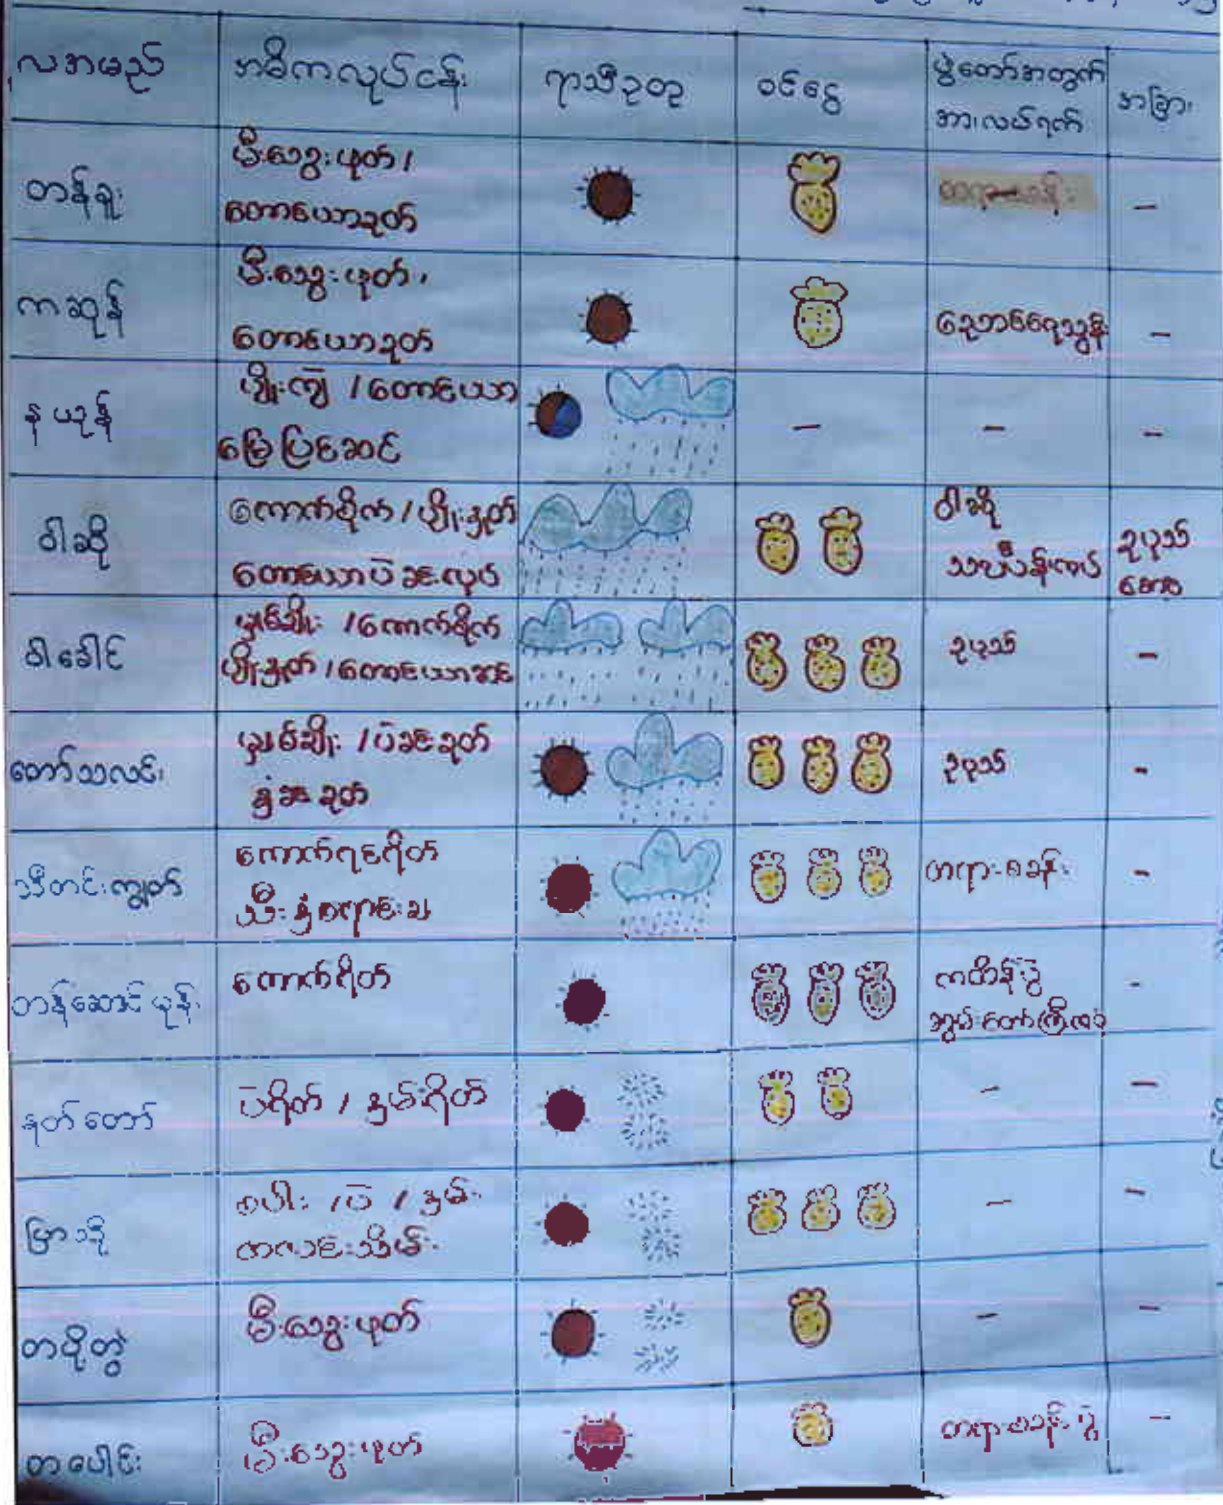 လအမည်
အဓိကလုပ်ငန်း
ရာသီဥတု
ဝင်ငွေ
ပွဲတော်အတွက်
အားလပ်ရက်
အခြား
တန်ခူး
မီးသွေးဖုတ်/
တောင်ယာခုတ်
-
ကဆုန်
မီးသွေးဖုတ်၊
တောင်ယာခုတ်
ညောင်ရေသွန်း
-
နယုန်
ပျိုးကျဲ / တောင်ယာ
မြေပြင်ဆင်
-
-
-
ဝါဆို
ကောက်စိုက် / ပျိုးနှုတ်
တောင်ယာပဲခင်းလုပ်
ဝါဆို
သင်္ကန်းကပ်
ဥပုသ်
စောင့်
ဝါခေါင်
နှမ်းမျိုး / ကောက်စိုက်
ပျိုးနှုတ် / တောင်ယာခင်း
ဥပုသ်
-
တော်သလင်း
/ ပဲခင်းခုတ်
နှံခင်းခုတ်
ဥပုသ်
-
သီတင်းကျွတ်
ကောက်ရင်ရိတ်
သီးနှံစရင်းချ
တရားစခန်း
-
တန်ဆောင်မုန်း
ကောက်ရိတ်
ကထိန်ပွဲ
ဆွမ်းတော်ကြီးကပ်ပွဲ
-
နတ်တော်
ပဲရိတ် / နှမ်းရိတ်
-
-
ပြာသို
စပါး / ပဲ / နှမ်း
ကလင်းသိမ်း
-
-
တပို့တွဲ
မီးသွေးဖုတ်
-
-
တပေါင်း
မီးသွေးဖုတ်
တရားစခန်းပွဲ
-